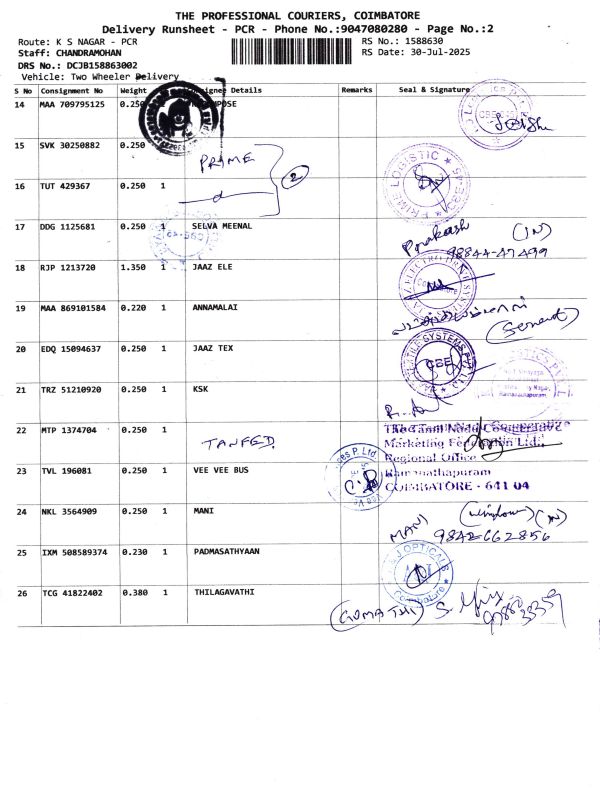 THE PROFESSIONAL COURIERS, COIMBATORE
Delivery Runsheet - PCR - Phone No.:9047080280 - Page No.:2
Route: K S NAGAR - PCR
RS No.: 1588630
Staff: CHANDRAMOHAN
RS Date: 30-Jul-2025
DRS No.: DCJB158863002
Vehicle: Two Wheeler Delivery
S No Consignment No Weight Details Remarks Seal & Signature
14 MAA 709795125 0.250
15 SVK 30250882 0.250
PRIME
2
16 TUT 429367 0.250 1
PRIME LOGISTIC
17 DDG 1125681 0.250 1 SELVA MEENAL
Prakash (IN)
98844-47499
18 RJP 1213720 1.350 1 JAAZ ELE
19 MAA 869101584 0.220 1 ANNAMALAI
20 EDQ 15094637 0.250 1 JAAZ TEX
CBE
21 TRZ 51210920 0.250 1 KSK
22 MTP 1374704 0.250 1 TANFED
The Tamil Nadu Cooperative
Marketing Federation Ltd.,
Regional Office
Ramanathapuram
COIMBATORE - 641 04
23 TVL 196081 0.250 1 VEE VEE BUS
24 NKL 3564909 0.250 1 MANI
MANI (IN)
9842662856
25 IXM 508589374 0.230 1 PADMASATHYAAN
J OPTICALS
Coimbatore
26 TCG 41822402 0.380 1 THILAGAVATHI
(GOMATHI)